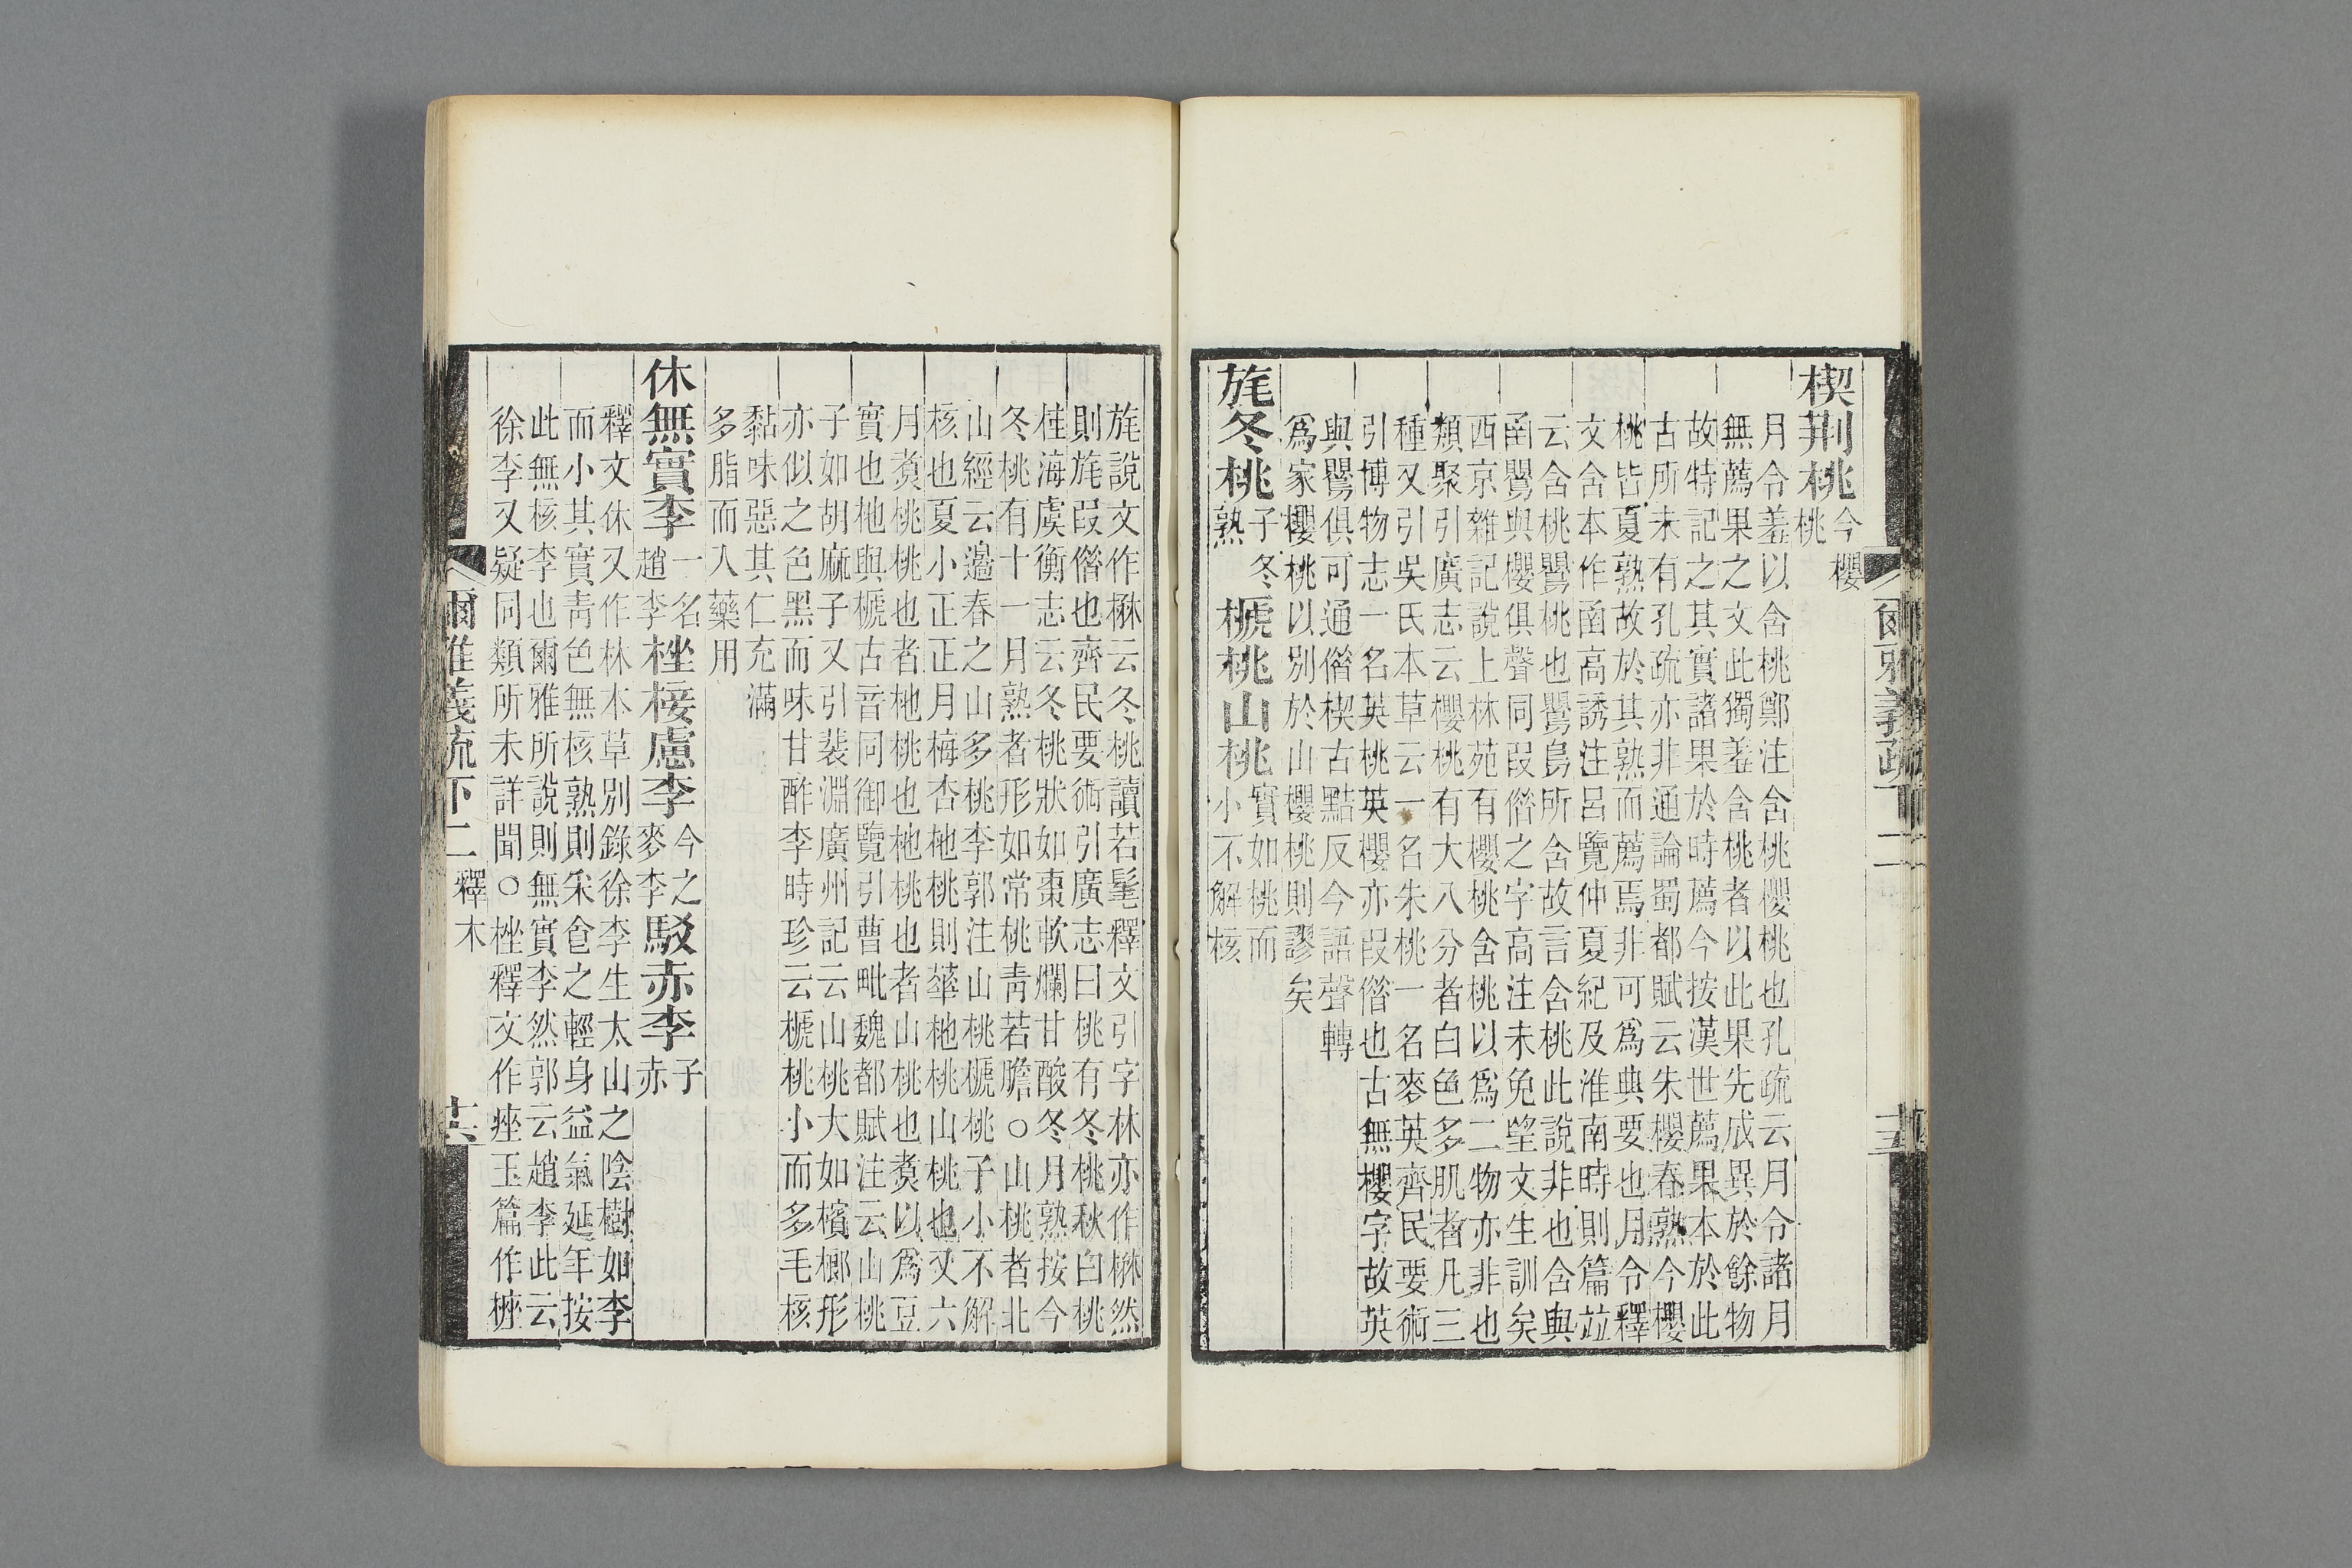 爾雅義疏下二
楔荆桃今櫻
桃
月令羞以含桃鄭注含桃櫻桃也孔疏云月令諸月
無薦果之文此獨羞含桃者以此果先成異於餘物
故特記之其實諸果於時薦今按漢世薦果本於此
古所未有孔疏亦非通論蜀都賦云朱櫻春熟今櫻
桃皆夏熟故於其熟而薦焉非可爲典要也月令釋
文含本作函高誘注呂覽仲夏紀及淮南時則篇竝
云含桃鸎桃也鸎鳥所含故言含桃此說非也含與
函鸎與櫻俱聲同叚偺之字高注未免望文生訓矣
西京雜記說上林苑有櫻桃含桃以爲二物亦非也
類聚引廣志云櫻桃有大八分者白色多肌者凡三
種又引吳氏本草云一名朱桃一名麥英齊民要術
引博物志一名英桃英櫻亦叚偺也古無櫻字故英
與鸎俱可通偺楔古黠反今語聲轉
爲家櫻桃以別於山櫻桃則謬矣
旄冬桃子冬
熟
榹桃山桃實如桃而
小不解核
旄說文作楙云冬桃讀若髦釋文引字林亦作楙然
則旄叚偺也齊民要術引廣志曰桃有冬桃秋白桃
桂海虞衡志云冬桃狀如棗軟爛甘酸冬月熟按今
冬桃有十一月熟者形如常桃靑若膽○山桃者北
山經云邊春之山多桃李郭注山桃榹桃子小不解
核也夏小正正月梅杏杝桃則華杝桃山桃也又六
月煑桃桃也者杝桃也杝桃也者山桃也煑以爲豆
實也杝與榹古音同御覽引曹毗魏都賦注云山桃
子如胡麻子又引裴淵廣州記云山桃大如檳榔形
亦似之色黑而味甘酢李時珍云榹桃小而多毛核
黏味惡其仁充滿
多脂而入藥用
休無實李一名
趙李
痤椄慮李今之
麥李
駁赤李子
赤
釋文休又作㭋本草別錄徐李生太山之陰樹如李
而小其實靑色無核熟則采食之輕身益氣延年按
此無核李也爾雅所說則無實李然郭云趙李此云
徐李又疑同類所未詳聞○㭫釋文作痤玉篇作㯔
爾雅義疏下二 釋木
十六